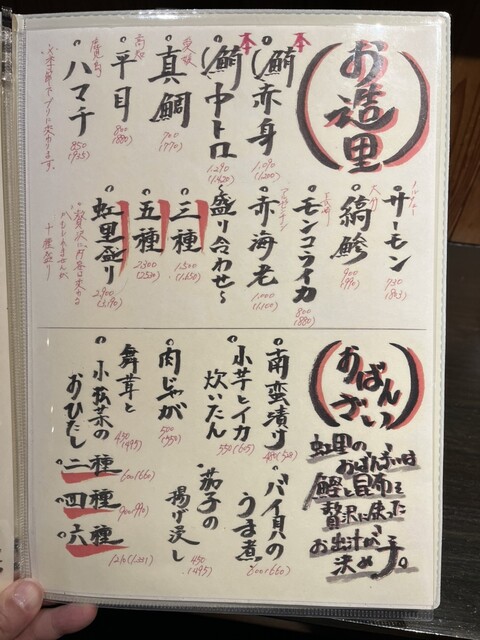 お造里
本
鮪赤身
1,090
(1,200)
本
鮪中トロ
1,290
(1,420)
愛媛
真鯛
700
(770)
高知
平目
800
(880)
鹿児島
ハマチ
850
(935)
※季節でブリに変わります。
ノルウェー
サーモン
730
(803)
大分
縞鯵
900
(990)
モンゴウイカ
800
(880)
アルゼンチン
赤海老
1,000
(1,100)
〜盛り合わせ〜
三種
1,500
(1,650)
五種
2,300
(2,530)
虹里盛り
2,900
(3,190)
十種盛り
おばんざい
虹里の
おばんざいは
鰹と昆布を
贅沢に使った
お出汁が
決め手。
南蛮漬け
バイ貝の
うま煮
600(660)
小芋とイカ
炊いたん
550(605)
茄子の
揚げ浸し
450
(495)
肉じゃが
500
(550)
舞茸と
小松菜の
おひたし
450
(495)
二種
600(660)
四種
900(990)
六種
1,210(1,331)